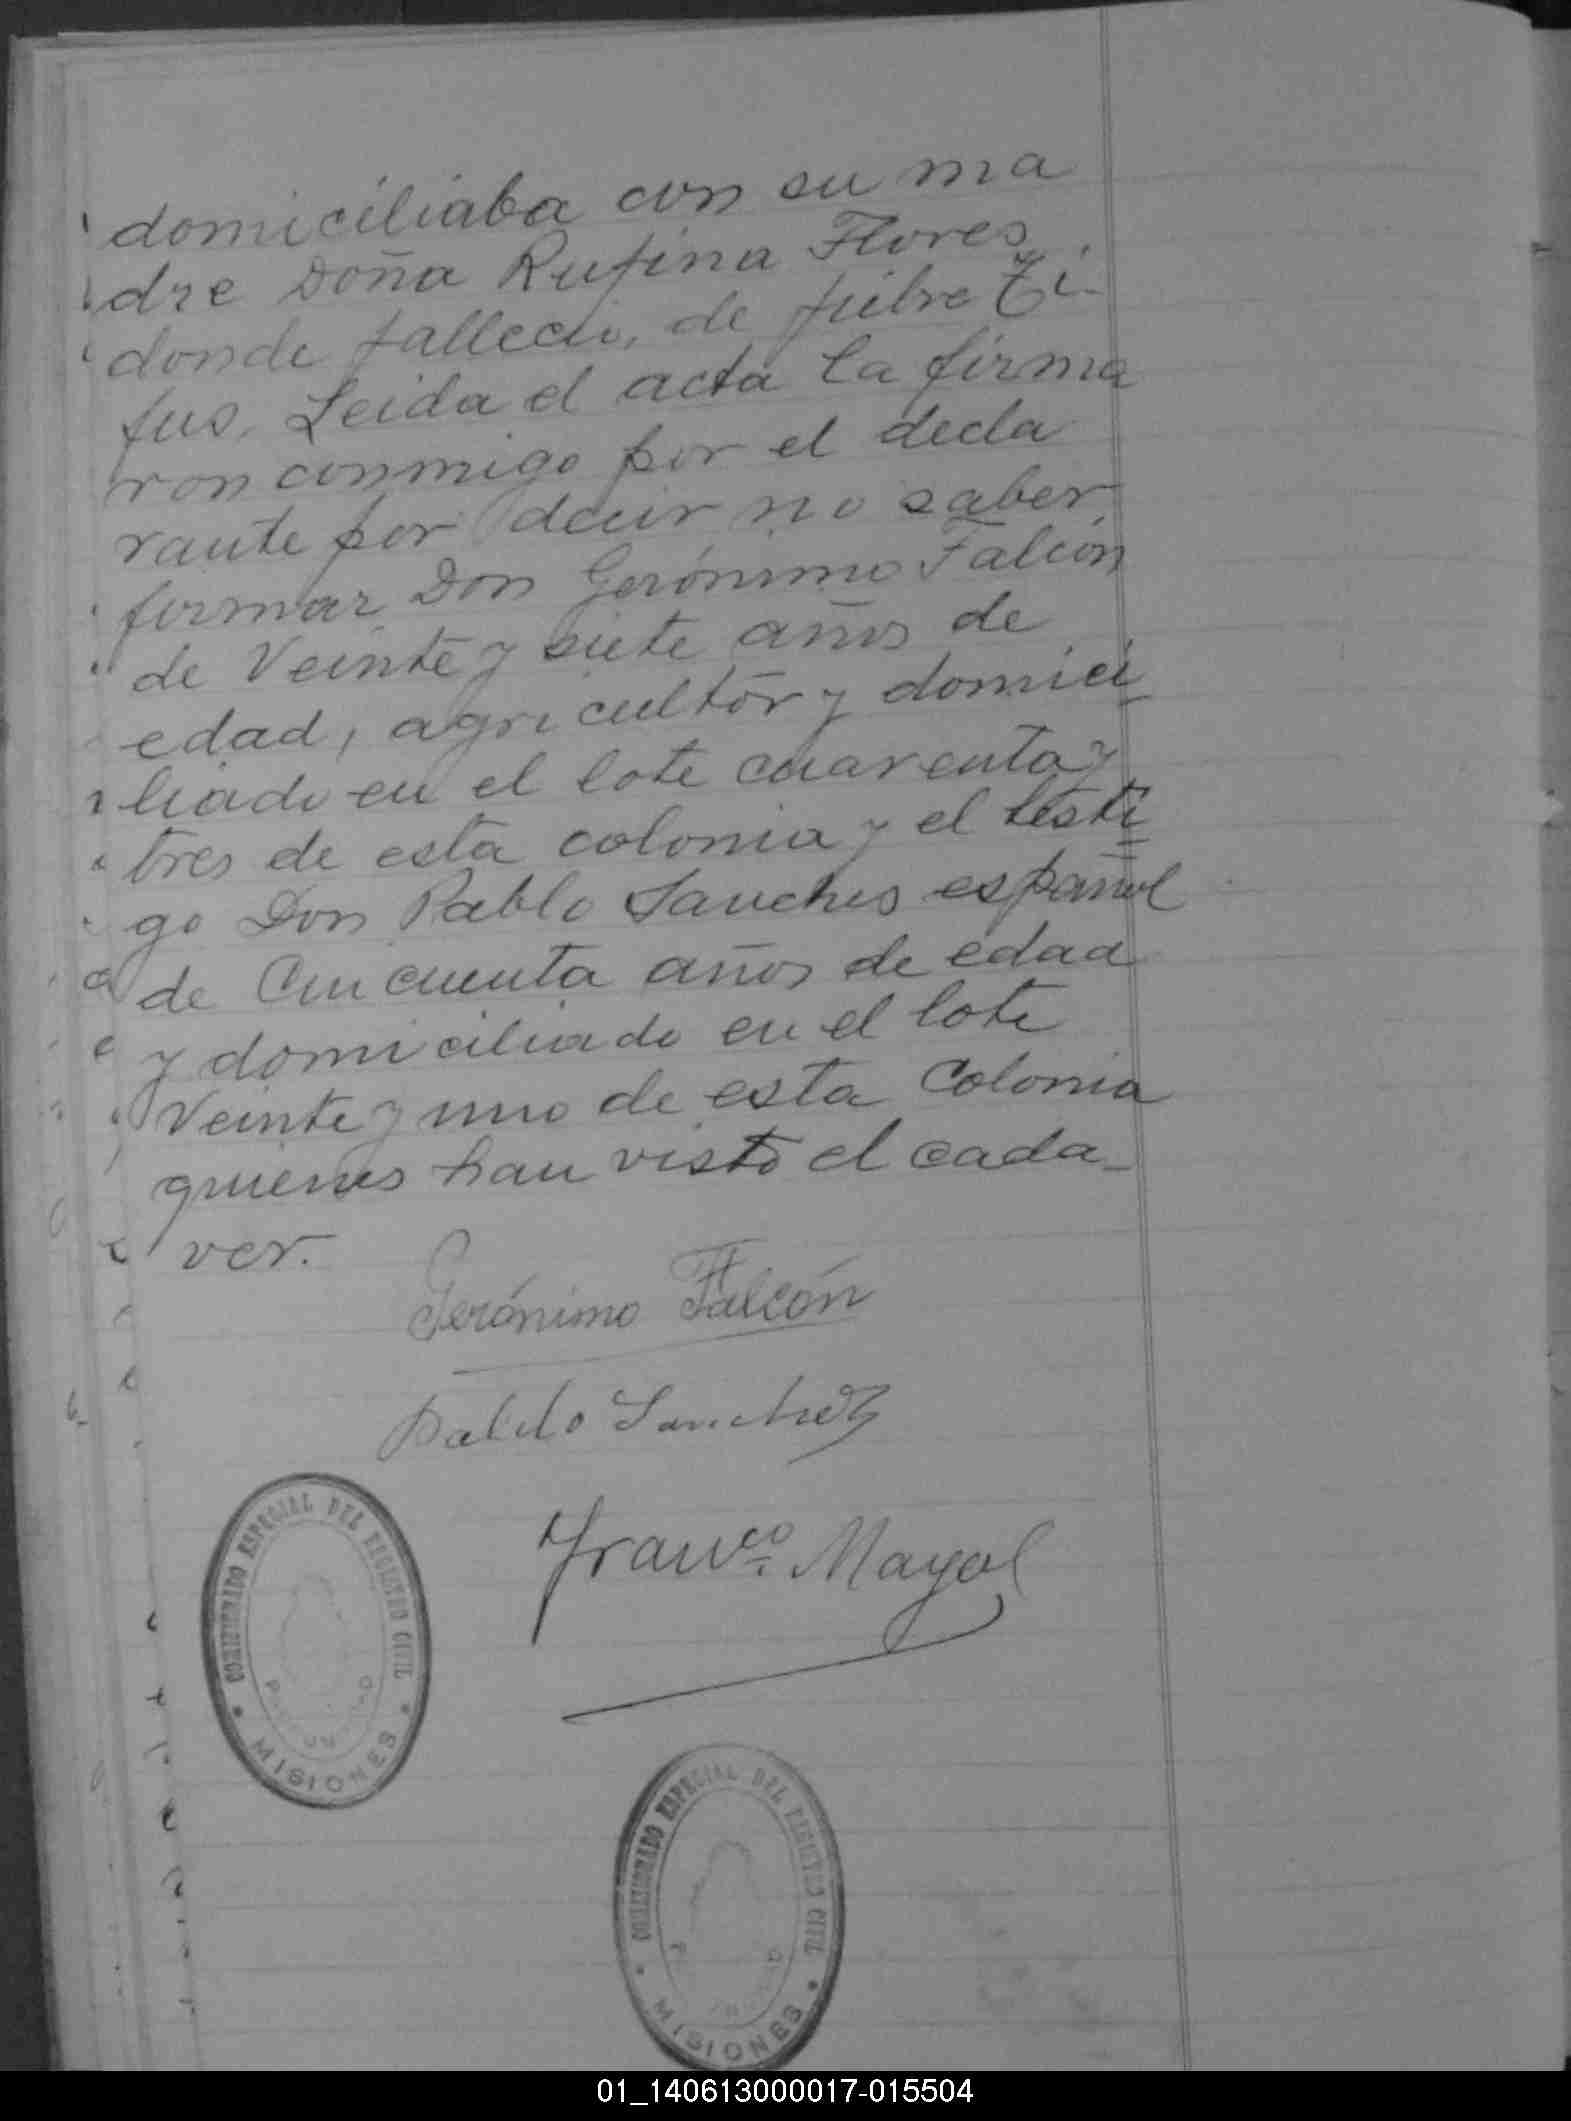 domiciliaba con su ma
dre Doña Rufina Flores
donde fallecio, de fiebre Ti-
fus. Leida el acta la firma
ron conmigo por el decla
rante por decir no saber
firmar Don Gerónimo Falcón
de Veinte y siete años de
edad, agricultor y domici
liado en el lote cuarenta y
tres de esta colonia y el testi
go Don Pablo Sanches español
de Cincuenta años de edad
y domiciliado en el lote
Veinte y uno de esta Colonia
quienes han visto el cada-
ver.
Gerónimo Falcón
Pablo Sanchez
Franco. Mayol
COMISIONADO ESPECIAL DEL REGISTRO CIVIL
MISIONES
COMISIONADO ESPECIAL DEL REGISTRO CIVIL
MISIONES
01_140613000017-015504